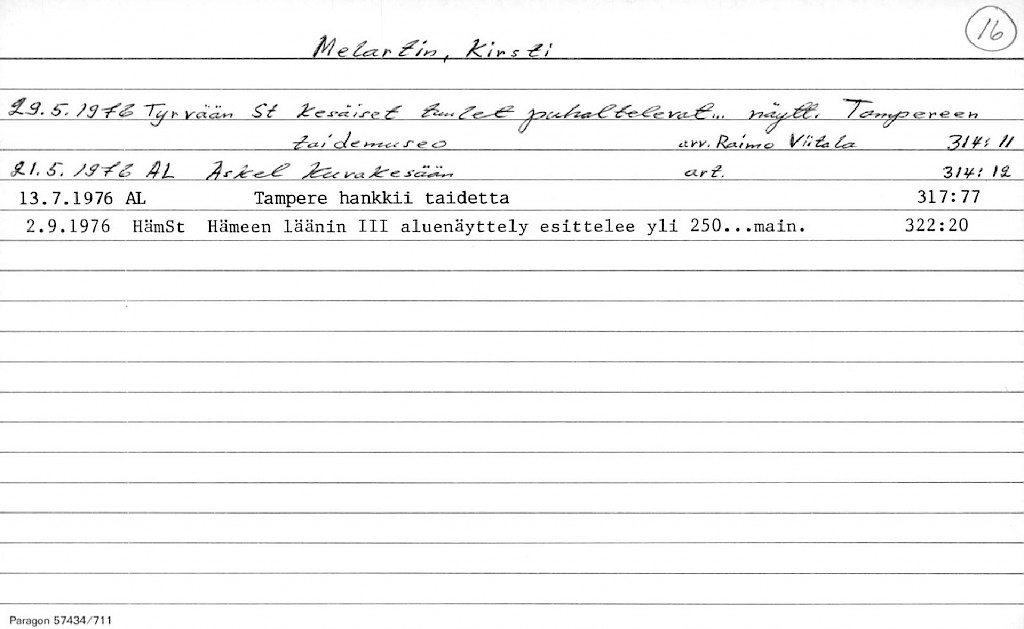 16
Melartin, Kirsti
29.5.1976 Tyrvään St Kesäiset tuulet puhaltelevat... näytt. Tampereen
taidemuseo arv. Raimo Viitala 314:11
21.5.1976 AL Askel Kuvakesään art. 314:12
13.7.1976 AL Tampere hankkii taidetta 317:77
2.9.1976 HämSt Hämeen läänin III aluenäyttely esittelee yli 250...main. 322:20
Paragon 57434/711